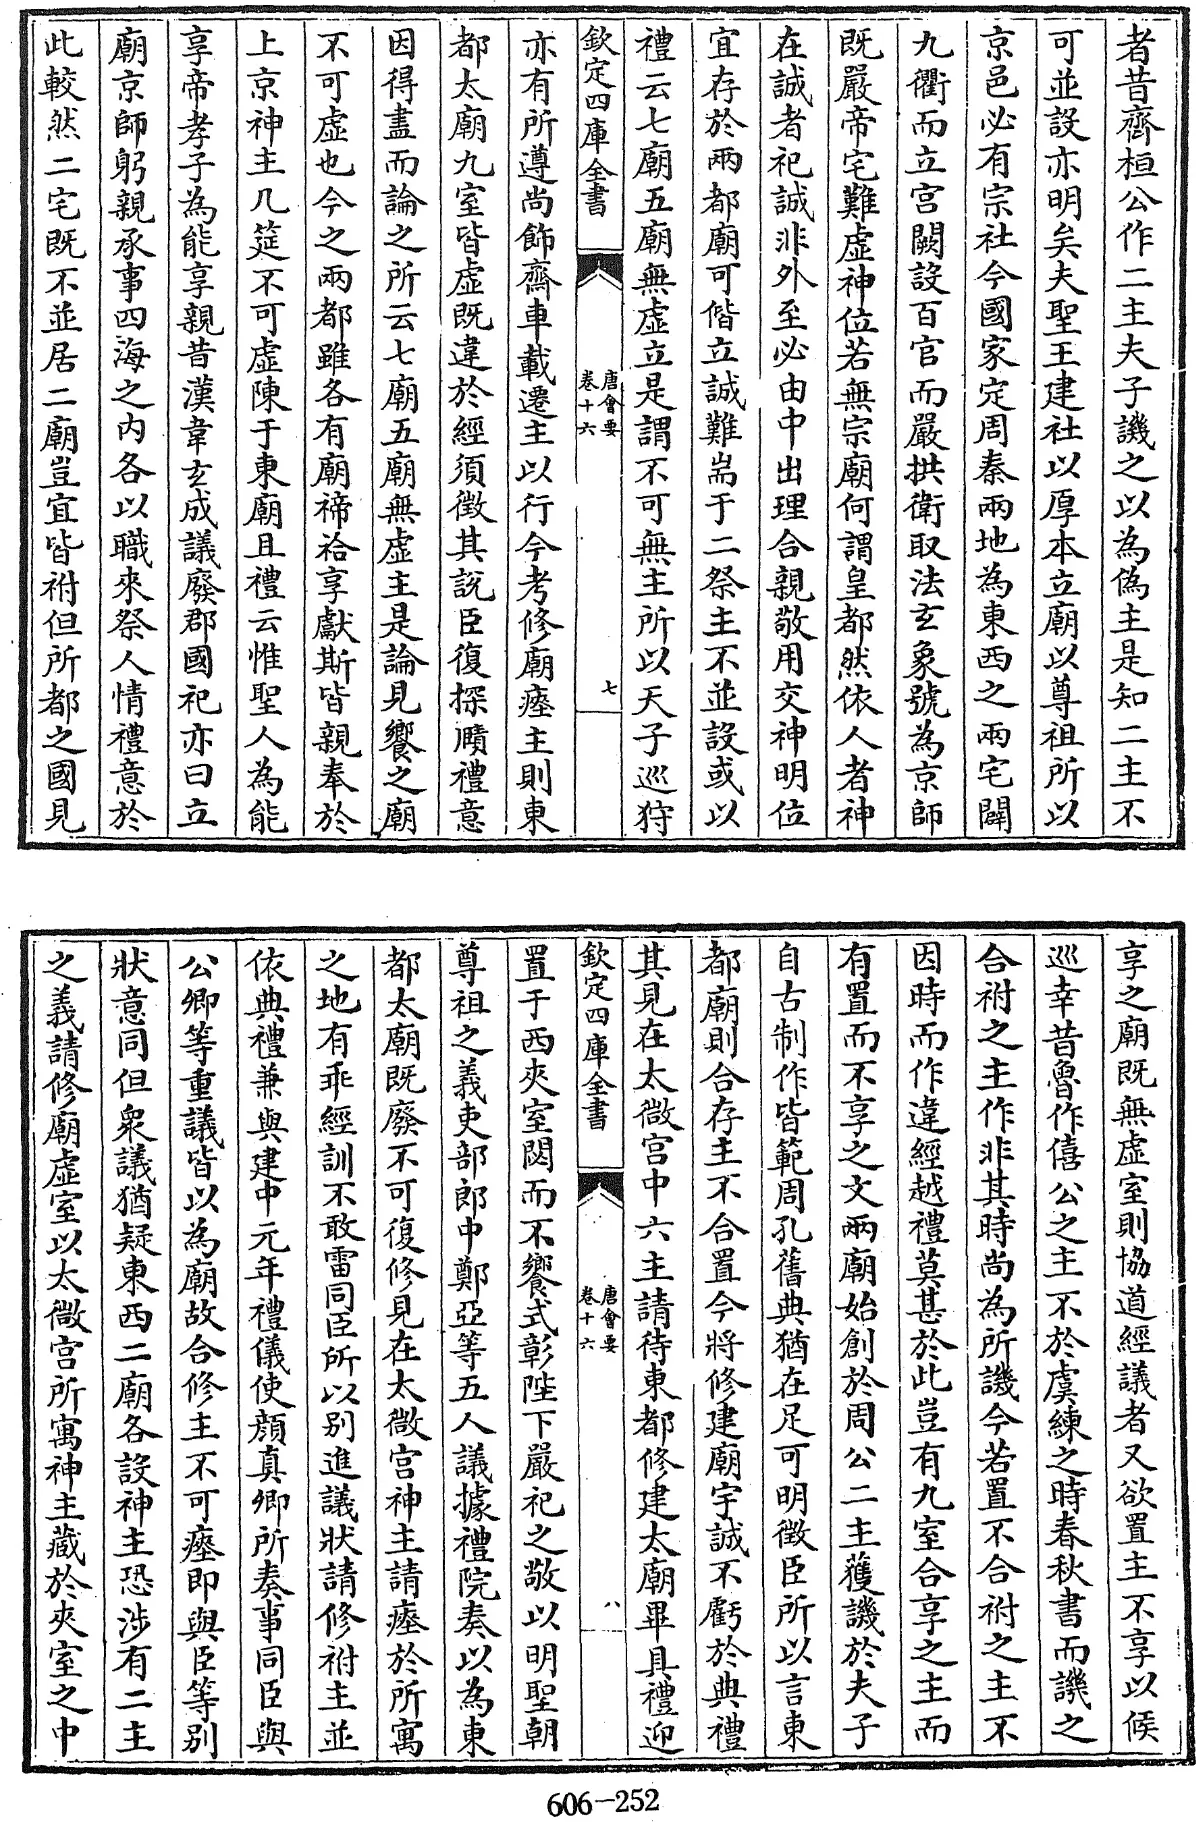 者昔齊桓公作二主夫子譏之以為偽主是知二主不
可並設亦明矣夫聖王建社以厚本立廟以尊祖所以
京邑必有宗社今國家定周秦兩地為東西之兩宅闢
九衢而立宫闕設百官而嚴拱衛取法玄象號為京師
既嚴帝宅難虚神位若無宗廟何謂皇都然依人者神
在誠者祀誠非外至必由中出理合親敬用交神明位
宜存於兩都廟可偕立誠難耑于二祭主不並設或以
禮云七廟五廟無虚主是謂不可無主所以天子巡狩
欽定四庫全書
唐會要
卷十六
七
亦有所遵尚飾齊車載遷主以行今考修廟瘞主則東
都太廟九室皆虚既違於經須徵其說臣復探賾禮意
因得盡而論之所云七廟五廟無虚主是論見饗之廟
不可虚也今之兩都雖各有廟禘祫享獻斯皆親奉於
上京神主几筵不可虚陳于東廟且禮云惟聖人為能
享帝孝子為能享親昔漢韋玄成議廢郡國祀亦曰立
廟京師躬親承事四海之内各以職來祭人情禮意於
此較然二宅既不並居二廟豈宜皆祔但所都之國見
享之廟既無虚室則協道經議者又欲置主不享以候
巡幸昔魯作僖公之主不於虞練之時春秋書而譏之
合祔之主作非其時尚為所譏今若置不合祔之主不
因時而作違經越禮莫甚於此豈有九室合享之主而
有置而不享之文兩廟始創於周公二主獲譏於夫子
自古制作皆範周孔舊典猶在足可明徵臣所以言東
都廟則合存主不合置今將修建廟宇誠不虧於典禮
其見在太微宫中六主請待東都修建太廟畢具禮迎
欽定四庫全書
唐會要
卷十六
八
置于西夾室閟而不饗式彰陛下嚴祀之敬以明聖朝
尊祖之義吏部郎中鄭亞等五人議據禮院奏以為東
都太廟既廢不可復修見在太微宫神主請瘞於所寓
之地有乖經訓不敢雷同臣所以别進議狀請修祔主並
依典禮兼與建中元年禮儀使顔真卿所奏事同臣與
公卿等重議皆以為廟故合修主不可瘞即與臣等别
狀意同但衆議猶疑東西二廟各設神主恐涉有二主
之義請修廟虚室以太微宫所寓神主藏於夾室之中
606-252